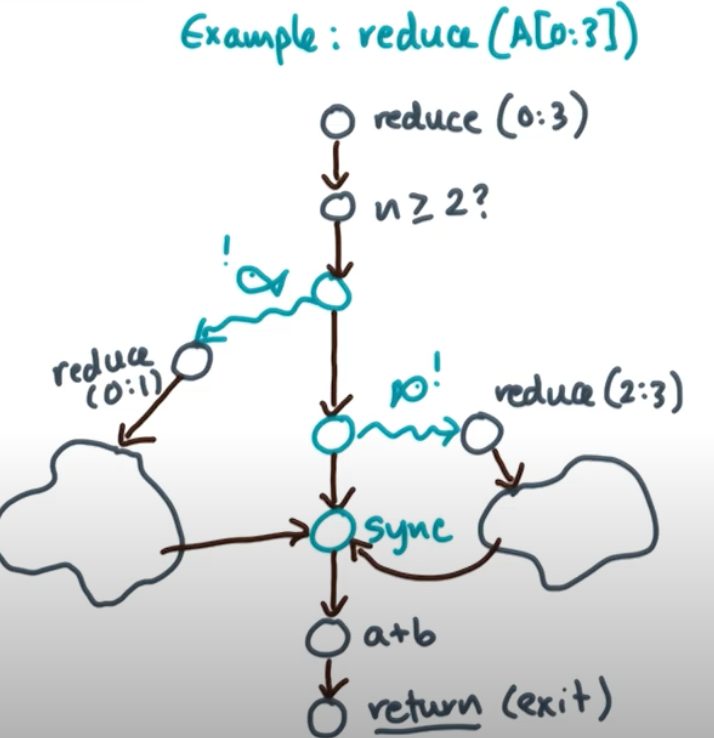 Example: reduce (A[0:3])
reduce (0:3)
n ≥ 2?
!
reduce
(0:1)
!
reduce (2:3)
sync
a+b
return (exit)